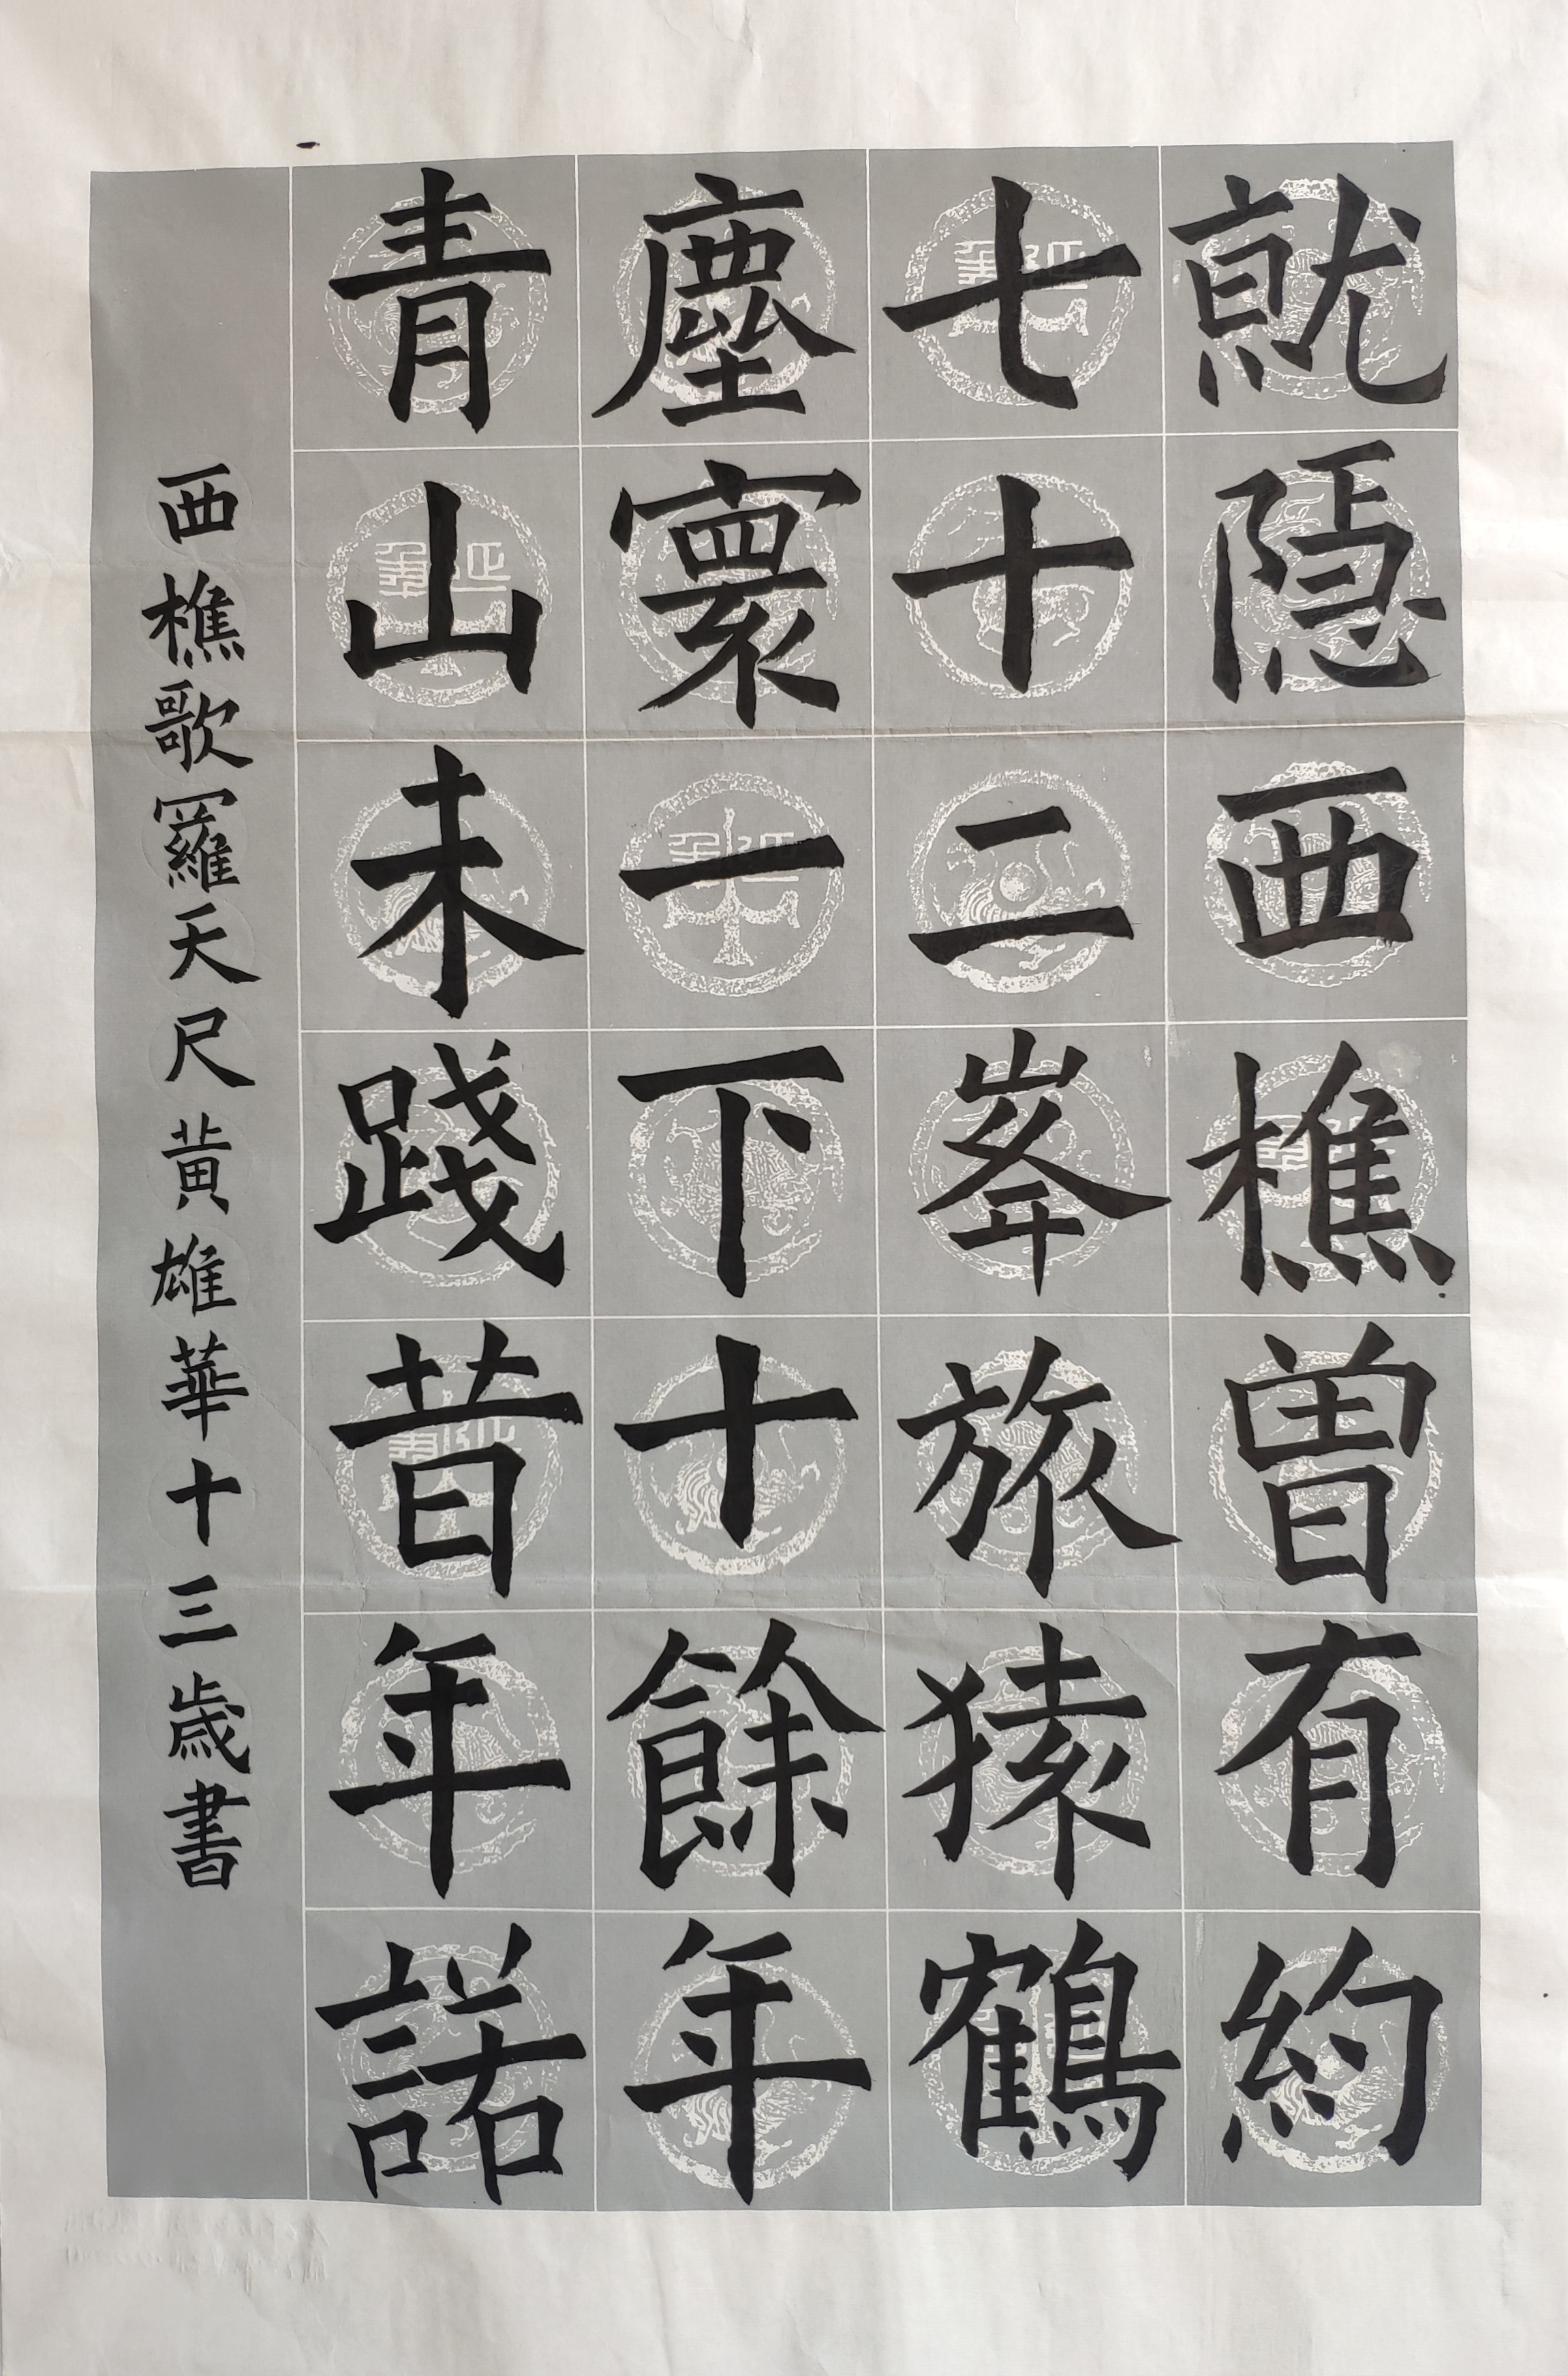 就隱西樵曾有約
七十二峯旅猿鶴
塵寰一下十餘年
青山未踐昔年諾
西樵歌羅天尺黄雄華十三歲書